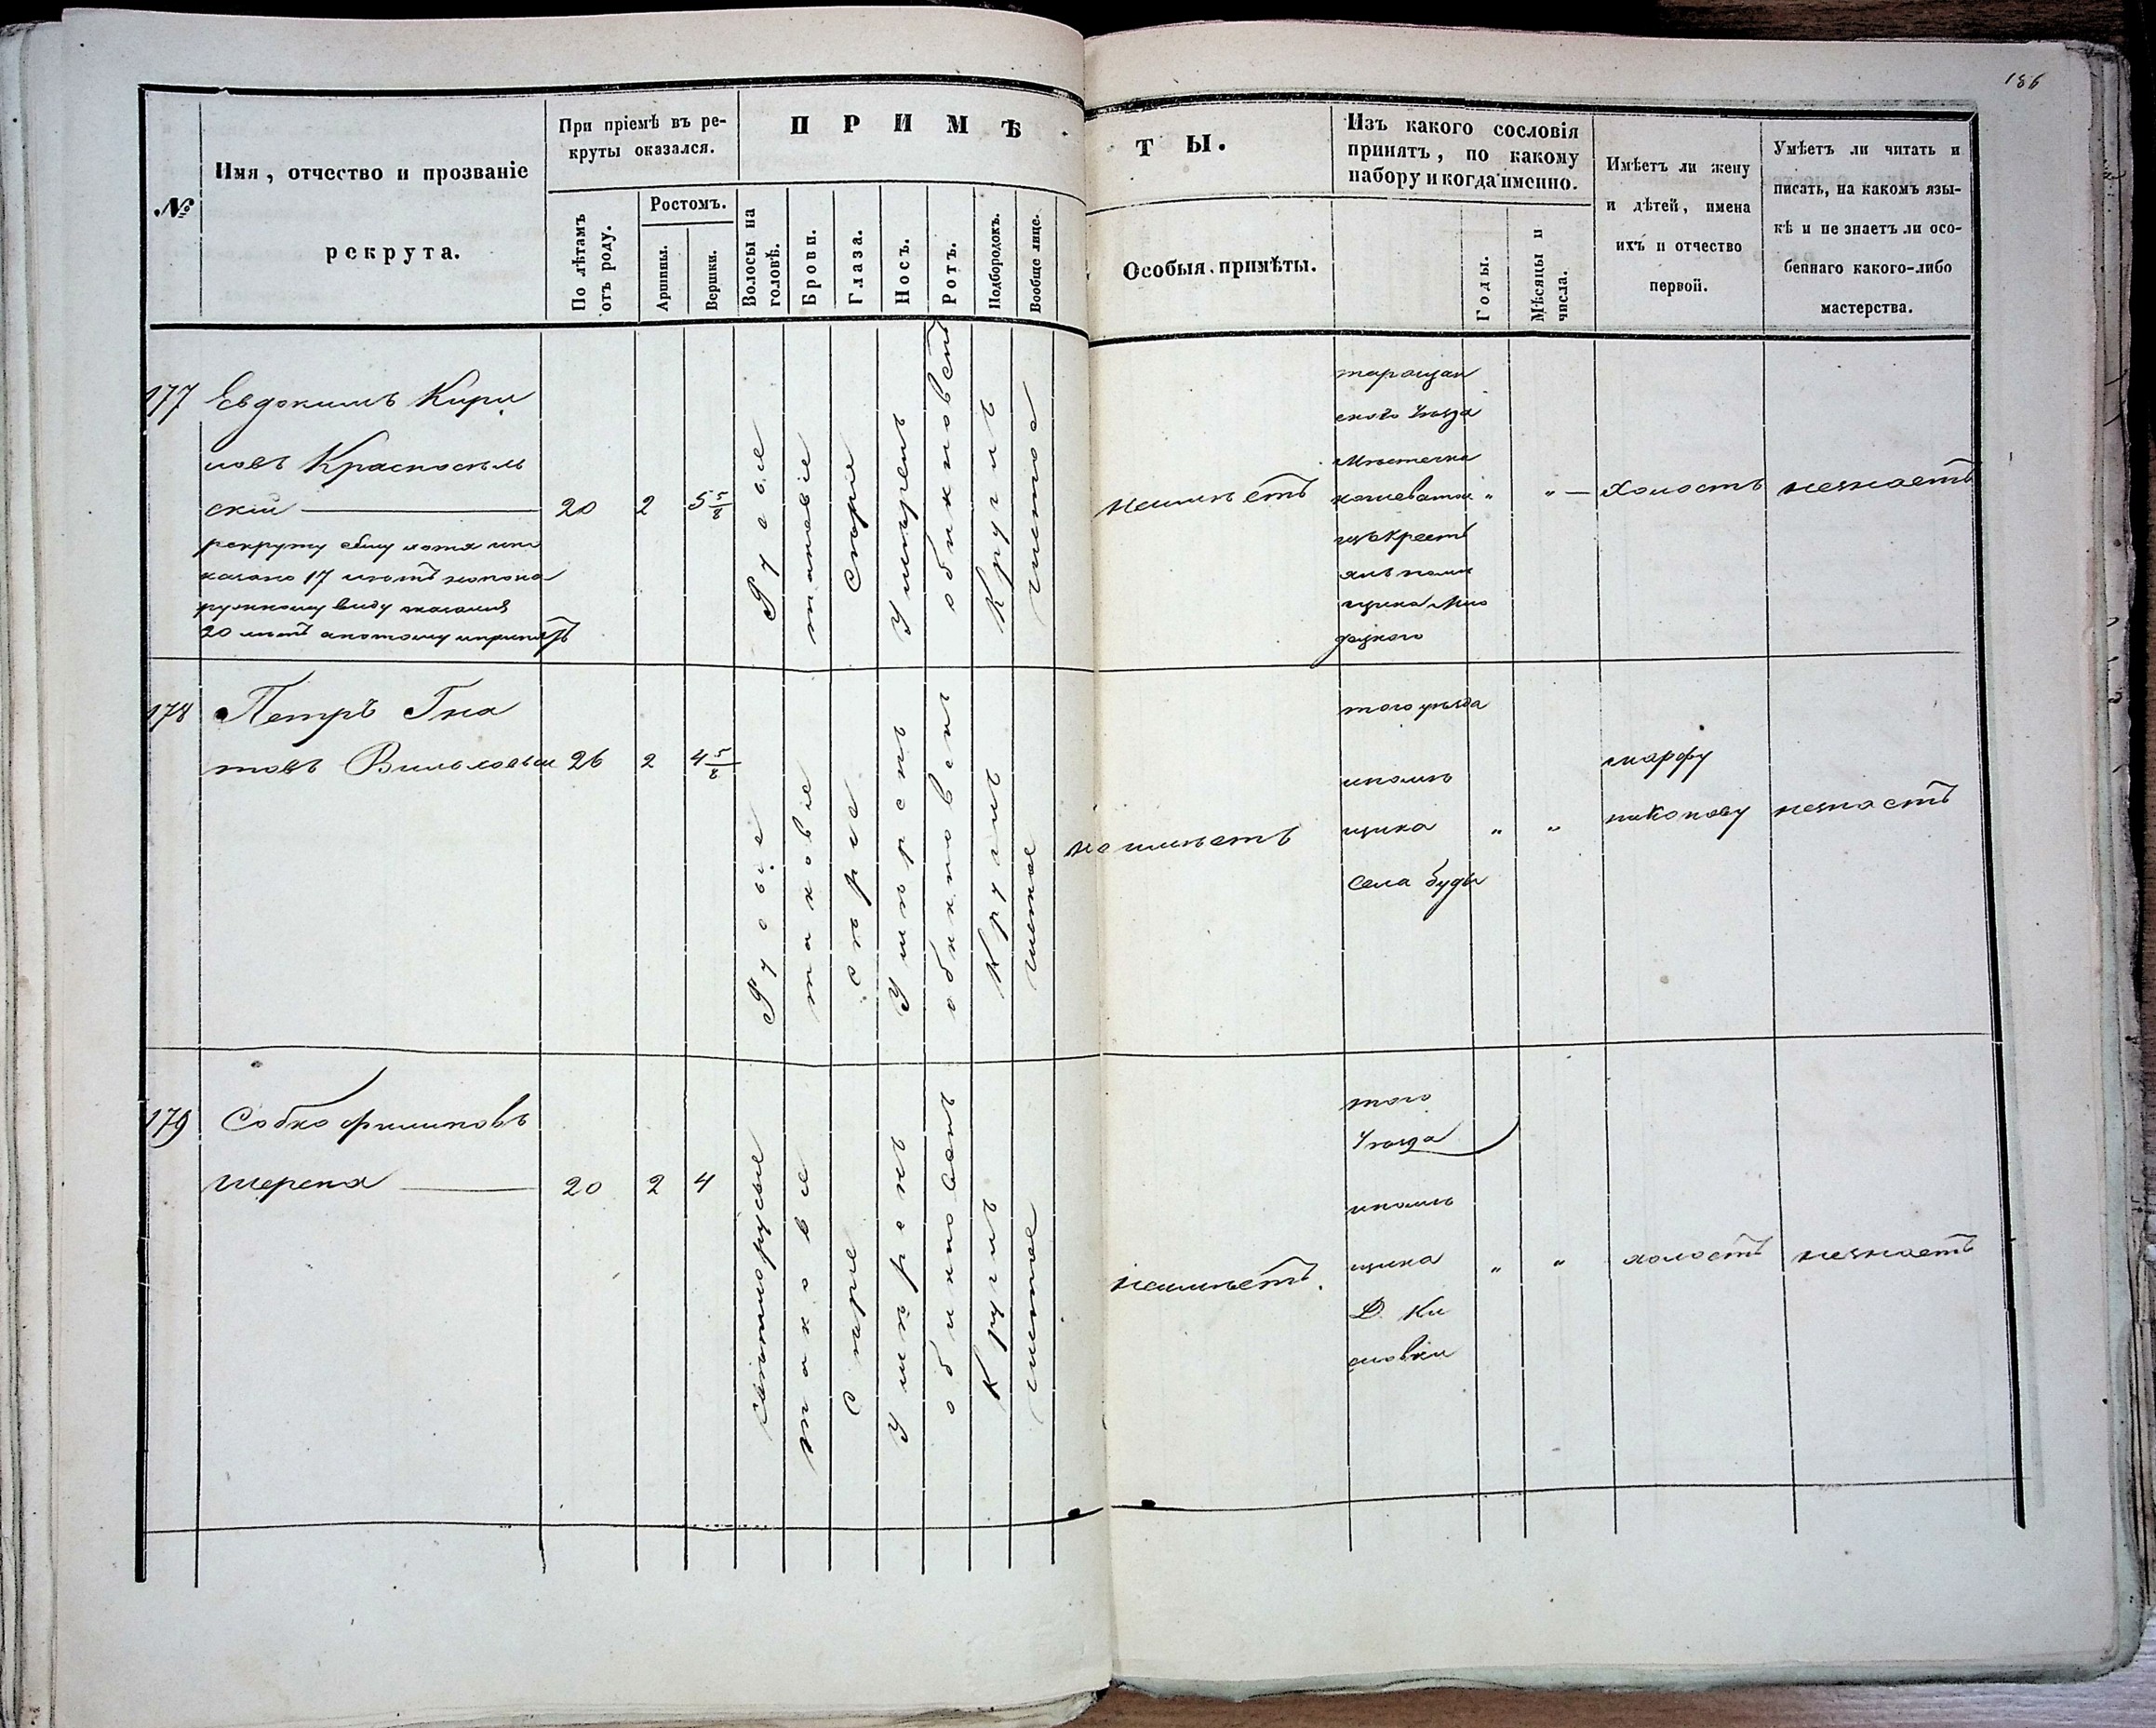 186
№
Имя, отчество и прозваніе
рекрута.
При пріемѣ въ ре-
круты оказался.
По лѣтамъ
отъ роду.
Ростомъ.
Аршины.
Вершки.
ПРИМѢ
Волосы на
головѣ.
Брови.
Глаза.
Носъ.
Ротъ.
Подбородокъ.
Вообще лице.
ТЫ.
Особыя примѣты.
Изъ какого сословія
принятъ, по какому
набору и когда именно.
Годы.
Мѣсяцы и
числа.
Имѣетъ ли жену
и дѣтей, имена
ихъ и отчество
первой.
Умѣетъ ли читать и
писать, на какомъ язы-
кѣ и не знаетъ ли осо-
беннаго какого-либо
мастерства.
177
Евдокимъ Кири
ловъ Красносѣль
скій
рекруту сему хотя
17 лѣтъ но по на
ружному виду
20 лѣтъ а потому и принятъ
20
2
5 5/8
Русые
таковые
Сѣрые
Умѣренъ
обыкновенъ
Круглъ
чистое
неимѣетъ
таращан
ского Уѣзда
Мѣстечка
изъ крест
янъ помѣ
щика
"
"
Холостъ
незнаетъ
178
Петръ Гна
товъ
26
2
4 5/8
Русые
таковые
Сѣрые
Умѣренъ
обыкновенъ
Круглъ
чистое
неимѣетъ
того уѣзда
ипомѣ
щика
Села Буды
"
"
марфу
никонову
незнаетъ
179
Собко филиповъ
шереня
20
2
4
Свѣтлорусые
таковые
Сѣрые
Умѣренъ
обыкновенъ
Круглъ
чистое
неимѣетъ.
того
Уѣзда
ипомѣ
щика
Д. Ки
"
"
холостъ
незнаетъ